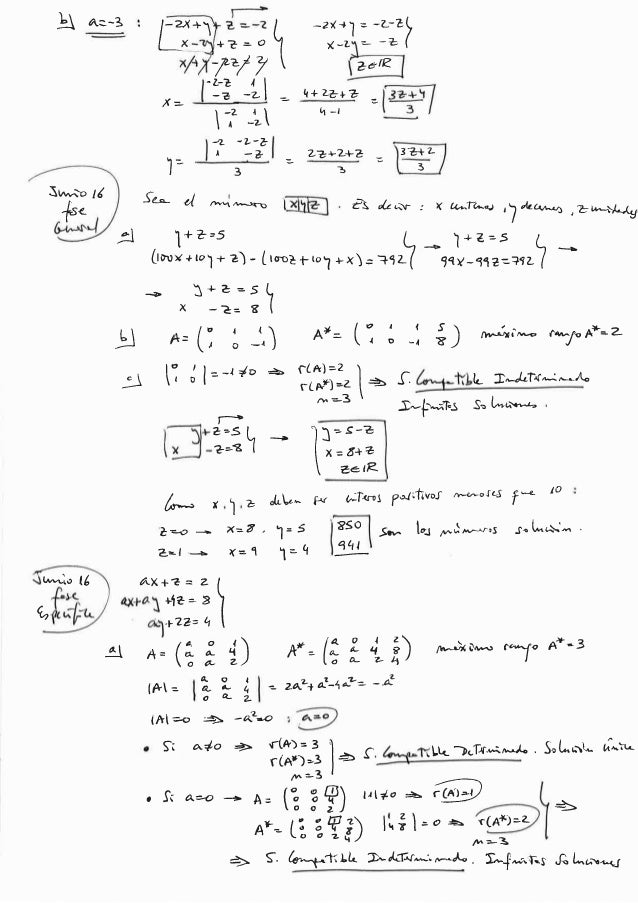 b) a=-3 : -2x+y+z=-2 } -2x+y=-2-z }
x-2y+z=0 x-2y=-z
x+y-2z=2 z∈ℝ
x= |-2-z 1; -z -2| / |-2 1; 1 -2| = 4+2z+z / 4-1 = 3z+4 / 3
y= |-2 -2-z; 1 -z| / 3 = 2z+2+z / 3 = 3z+2 / 3
Junio 16 fase General
Sea el número x|y|z . Es decir : x centenas, y decenas, z unidades
a) y+z=5
(100x+10y+z)-(100z+10y+x)=792 } → y+z=5
99x-99z=792 } →
→ y+z=5
x -z=8 }
b) A=(0 1 1; 1 0 -1) A*=(0 1 1 5; 1 0 -1 8) máximo rango A*=2
c) |0 1; 1 0|=-1≠0 ⇒ r(A)=2
r(A*)=2
n=3 | ⇒ S. Compatible Indeterminado
Infinitas Soluciones.
y+z=5
x -z=8 } → y=5-z
x=8+z
z∈ℝ
Como x,y,z deben ser enteros positivos menores que 10 :
z=0 → x=8, y=5 850
z=1 → x=9 y=4 941 son los números solución.
Junio 16 fase Específica
ax+z=2
ax+ay+4z=8
ay+2z=4 }
a) A=(a 0 1; a a 4; 0 a 2) A*=(a 0 1 2; a a 4 8; 0 a 2 4) máximo rango A*=3
|A|=|a 0 1; a a 4; 0 a 2|=2a²+a²-4a²=-a²
|A|=0 ⇒ -a²=0 ; a=0
• Si a≠0 ⇒ r(A)=3
r(A*)=3
n=3 | ⇒ S. Compatible Determinado. Solución única
• Si a=0 → A=(0 0 1; 0 0 4; 0 0 2) |1|≠0 ⇒ r(A)=1
A*=(0 0 1 2; 0 0 4 8; 0 0 2 4) |1 2; 4 8|=0 ⇒ r(A*)=2
n=3 } ⇒
⇒ S. Compatible Indeterminado. Infinitas Soluciones